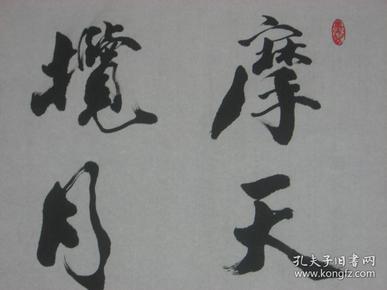 摩天
攬月
孔夫子旧书网
www.kongfz.com